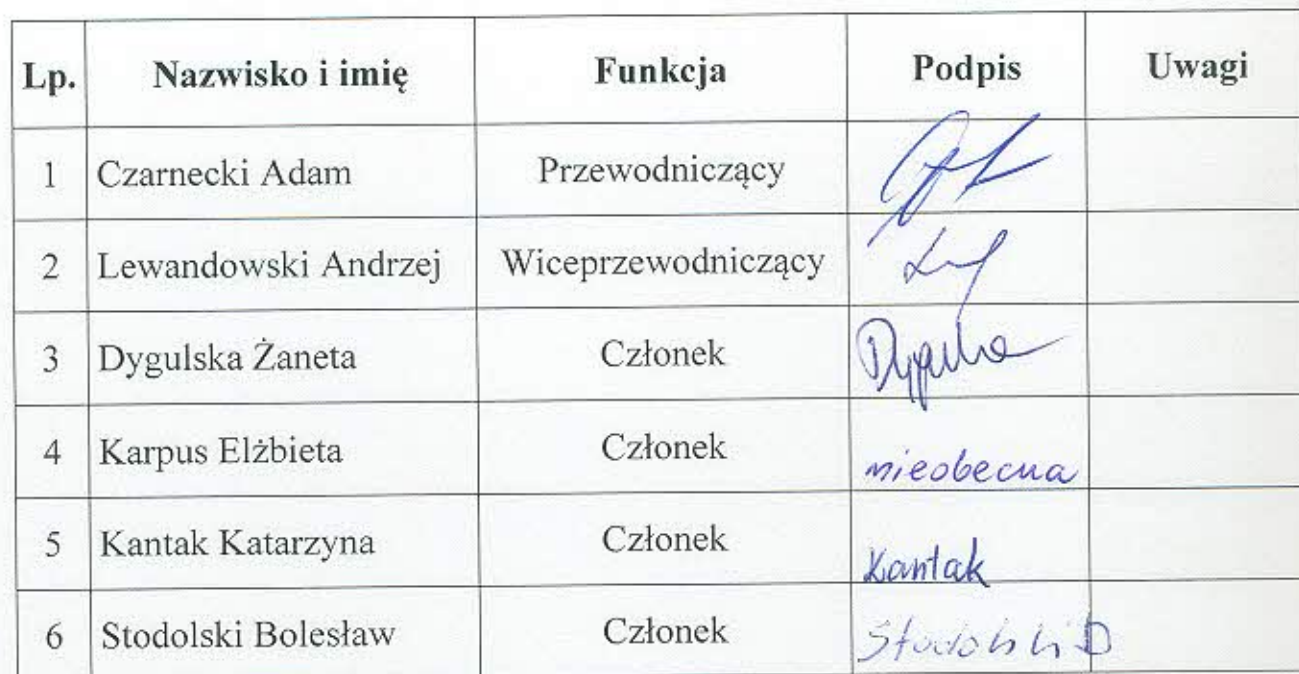 Lp. Nazwisko i imię Funkcja Podpis Uwagi
1 Czarnecki Adam Przewodniczący
2 Lewandowski Andrzej Wiceprzewodniczący
3 Dygulska Żaneta Członek
4 Karpus Elżbieta Członek nieobecna
5 Kantak Katarzyna Członek Kantak
6 Stodolski Bolesław Członek Stodolski B